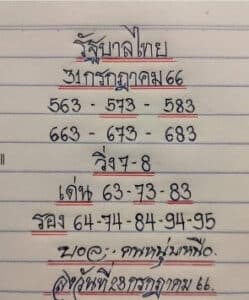 รัฐบาลไทย
31 กรกฎาคม 66
563 - 573 - 583
663 - 673 - 683
วิ่ง 7-8
เด่น 63-73-83
รอง 64-74-84-94-95
คนหนุ่มเหนือ
ส่งวันที่ 28 กรกฎาคม 66.